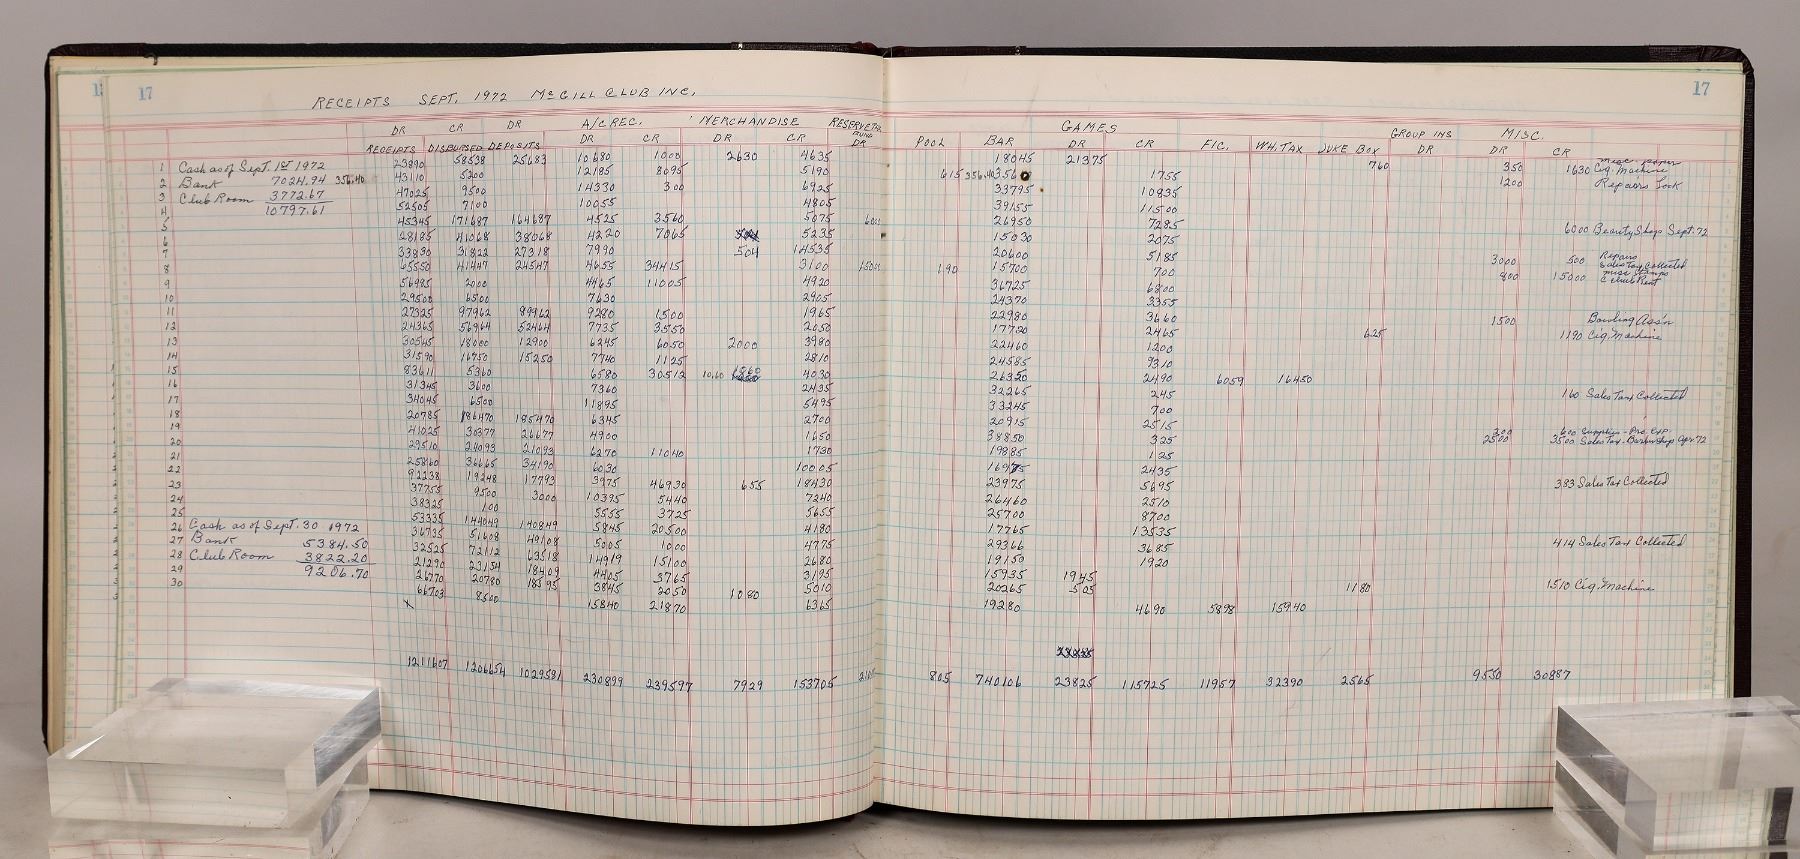 17
17
RECEIPTS SEPT. 1972 McGILL CLUB INC.
DR CR DR A/C REC. MERCHANDISE GAMES GROUP INS MISC.
RECEIPTS DISBURSED DEPOSITS DR CR DR CR DR POOL BAR DR CR FIC. WH. TAX JUKE BOX DR DR CR
1 Cash as of Sept. 1st 1972 23890 58538 25683 10680 1000 2630 4635 18045 21375 760 350 1630 Cig. Machine
2 Bank 7024.94 356.40 43110 5200 12185 8095 5190 615 356.40 1755 1200 Repairs Lock
3 Club Room 3772.67 47025 9500 14330 300 6925 33795 10935
4 10797.61 52505 7100 10055 4805 39155 11500
5 45345 171687 164687 4525 3560 5075 26950 7285 6000 Beauty Shop Sept. 72
6 28185 41068 38068 4220 7065 5235 15030 2075
7 33830 31822 27318 7990 504 14535 20600 5185 3000 500 Repairs Sales Tax Collected
8 65550 41447 24547 4655 34415 3100 190 15700 700 800 15000 Club Rent
9 56985 2000 4465 11005 4920 36725 6800
10 29500 6500 7630 2905 24370 3355
11 27325 97962 89962 9280 1500 1965 22980 3660 1500 Bowling Ass'n
12 24365 56964 52464 7735 3550 2050 17720 2465 625 1190 Cig. Machine
13 30545 18000 12900 6245 6050 2000 3980 22460 1200
14 31590 16750 15250 7740 1125 2810 24585 9310
15 83611 5360 6580 30512 10.60 4030 26320 2490 6059 16450
16 31345 3600 7360 2435 32265 245 160 Sales Tax Collected
17 34045 6500 11895 5495 33245 700
18 20785 186470 185470 6345 2700 20915 2515
19 41025 30377 26677 4900 1650 38850 325 200 600 Supplies - Pro. Exp.
20 29510 24093 21093 6270 11040 1730 19885 125 2500 3500 Sales Tax - Barbershop Apr. 72
21 25860 36665 34190 6030 10005 2435
22 92238 19248 17793 3975 46930 655 18430 23975 5695 383 Sales Tax Collected
23 37755 9500 3000 10395 5440 7240 26460 2510
24 38325 100 5555 3725 5655 25700 8700
25 53335 144049 140849 5845 20500 4180 17765 13535
26 Cash as of Sept. 30 1972 36735 51608 49108 5005 1000 4775 29366 3685 414 Sales Tax Collected
27 Bank 5384.50 32525 72112 63518 14919 15100 2680 19150 1920
28 Club Room 3822.20 21290 23154 18409 4405 3765 3195 15935 1945
29 9206.70 26770 20780 18595 3845 2050 1080 5010 20265 505 1180 1510 Cig. Machine
30 66703 8500 15840 21870 6365 19280 4690 5898 15940
1211607 1206654 1029531 230899 239597 7929 153705 805 740106 23825 115725 11957 32390 2565 9550 30887